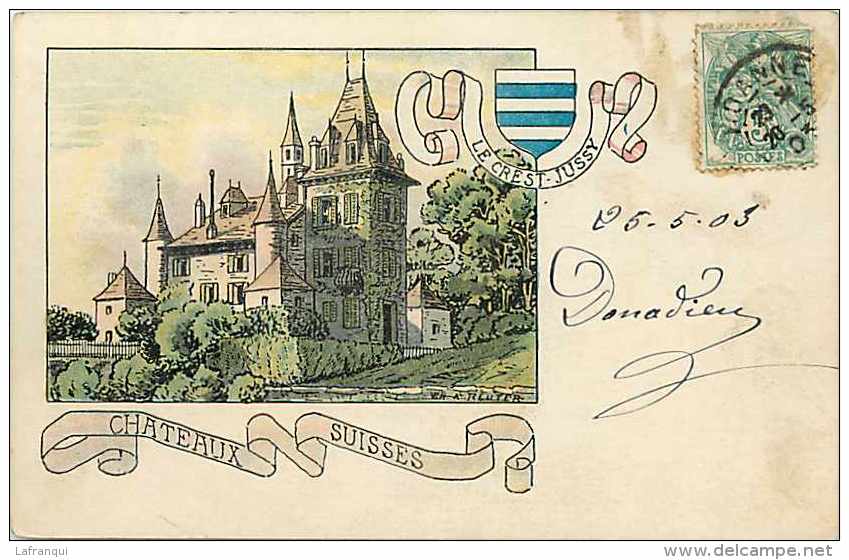 LE CREST-JUSSY
POSTES
25-5-03
Donadieu
CH A. REUTER
CHATEAUX SUISSES
Lafranqui
www.delcampe.net